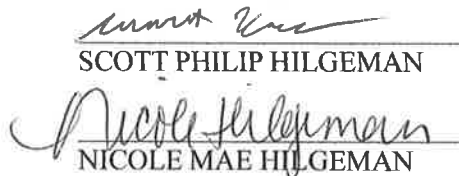 SCOTT PHILIP HILGEMAN
Nicole Hilgeman
NICOLE MAE HILGEMAN